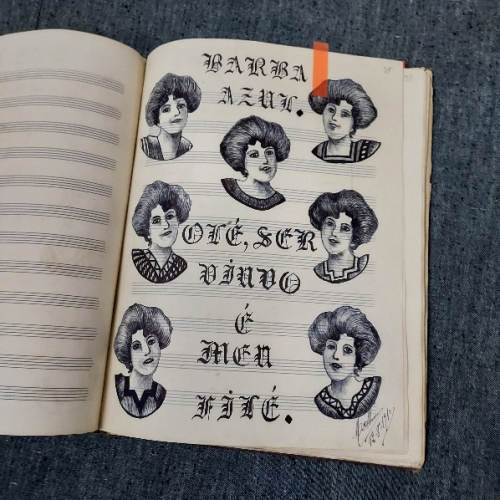 BARBA
AZUL.
OLÉ, SER
VIÚVO
É
MEU
FILÉ.